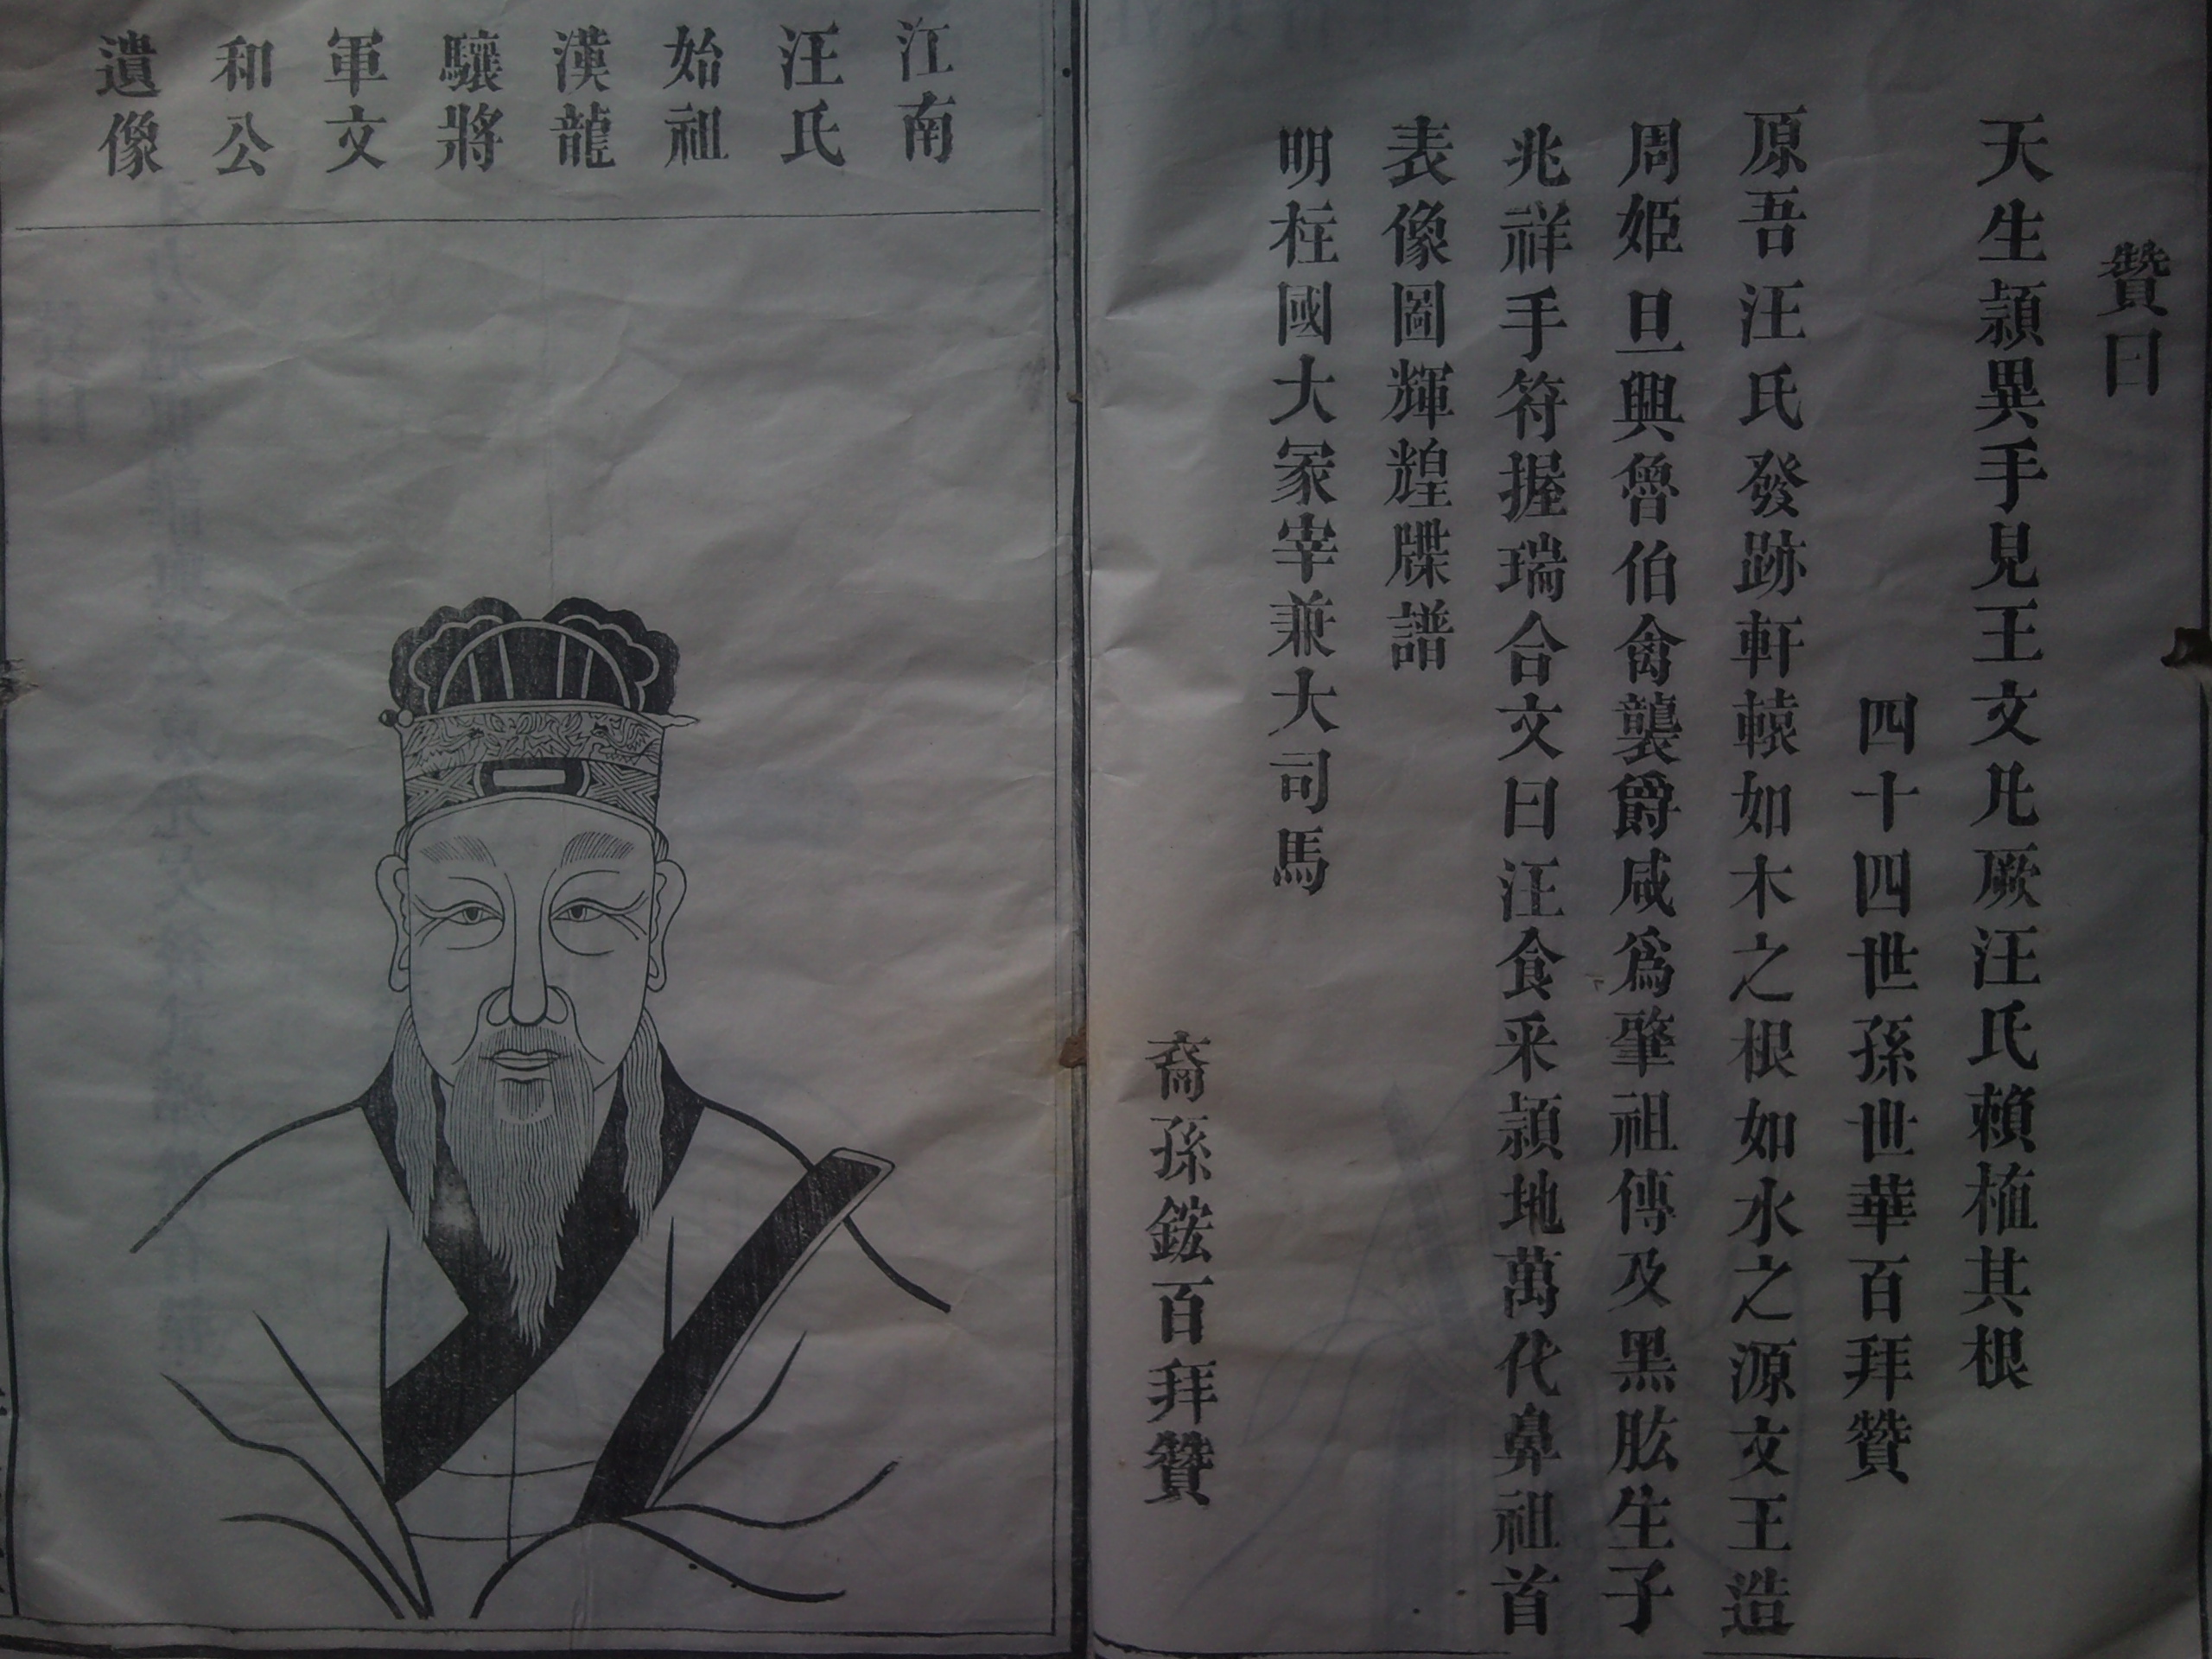 贊曰
天生潁異手見王文凡厥汪氏賴植其根
四十四世孫世華百拜贊
原吾汪氏發跡軒轅如木之根如水之源文王造
周姬旦興魯伯禽襲爵咸爲肇祖傳及黑肱生子
兆祥手符握瑞合文曰汪食采潁地萬代鼻祖首
表像圖輝煌牒譜
明柱國大冢宰兼大司馬
裔孫鋐百拜贊
江南
汪氏
始祖
漢龍
驤將
軍文
和公
遺像